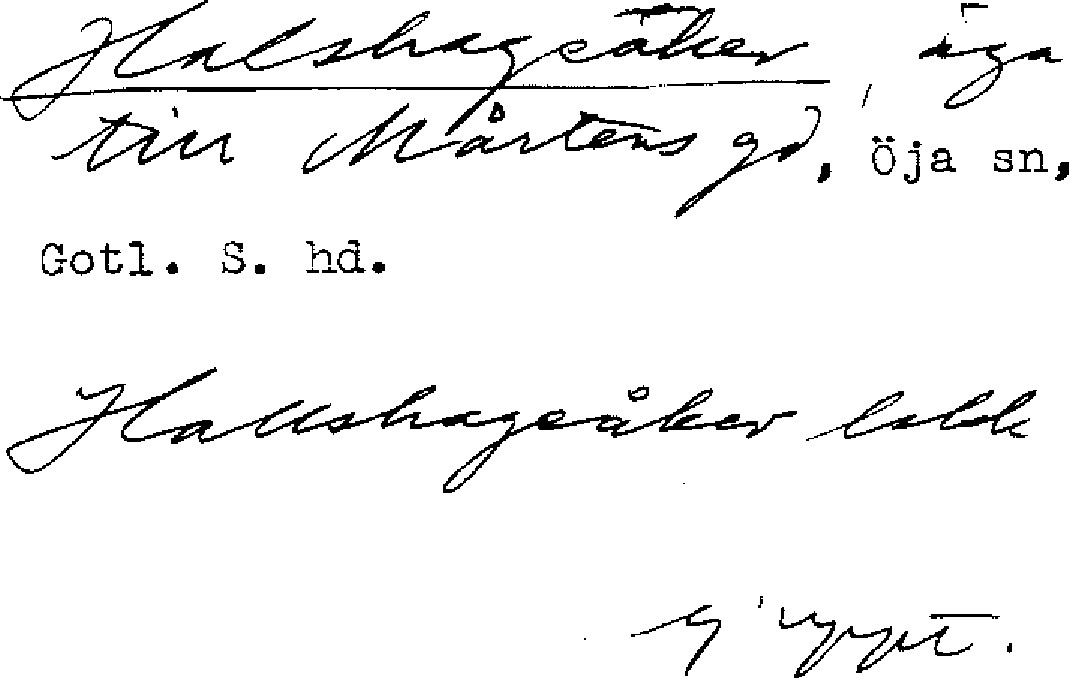 Halshageåker, äga
till Mårtens gd, Öja sn,
Gotl. S. hd.
Hallshageåker lsbk
Ej uppt.